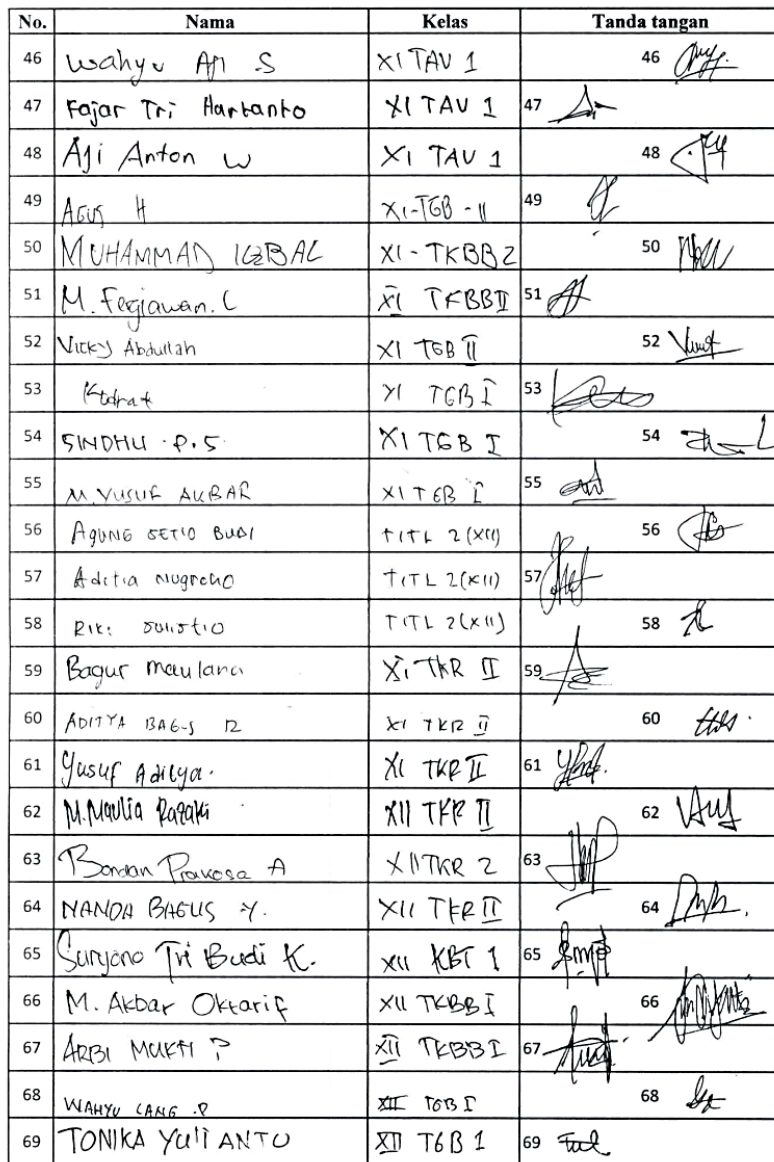 No. Nama Kelas Tanda tangan
46 Wahyu Aji S XI TAV 1 46
47 Fajar Tri Hartanto XI TAV 1 47
48 Aji Anton W XI TAV 1 48
49 AGUS H XI-TGB-II 49
50 MUHAMMAD IQBAL XI-TKBB2 50
51 M. XI TKBBII 51
52 Vicky Abdullah XI TGB II 52
53 Kodrat XI TGB I 53
54 SINDHU .P.S XI TGB I 54
55 M.YUSUF AKBAR XI TGB I 55
56 AGUNG SETIO BUDI TITL 2(XII) 56
57 Aditia Nugroho TITL 2(XII) 57
58 Riki Sulistio TITL 2(XII) 58
59 Bagus Maulana XI TKR II 59
60 ADITYA BAGUS R XI TKR II 60
61 Yusuf Aditya. XI TKR II 61
62 M.Maulia Razaki XII TKR II 62
63 Bondan Prakosa A XII TKR 2 63
64 NANDA BAGUS Y. XII TKR II 64
65 Suryono Tri Budi K. XII KBT 1 65
66 M. Akbar Oktarif XII TKBB I 66
67 ARBI MUKTI P XII TKBB I 67
68 WAHYU LANG .P XII TGB I 68
69 TONIKA YULIANTO XII TGB 1 69